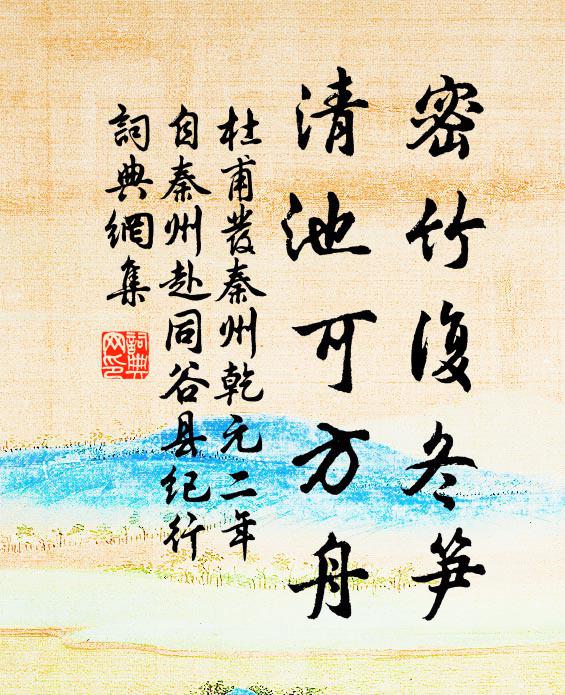 密竹復冬笋
清池可方舟
杜甫發秦州乾元二年
自秦州赴同谷县纪行
詞典網集
詞典网印